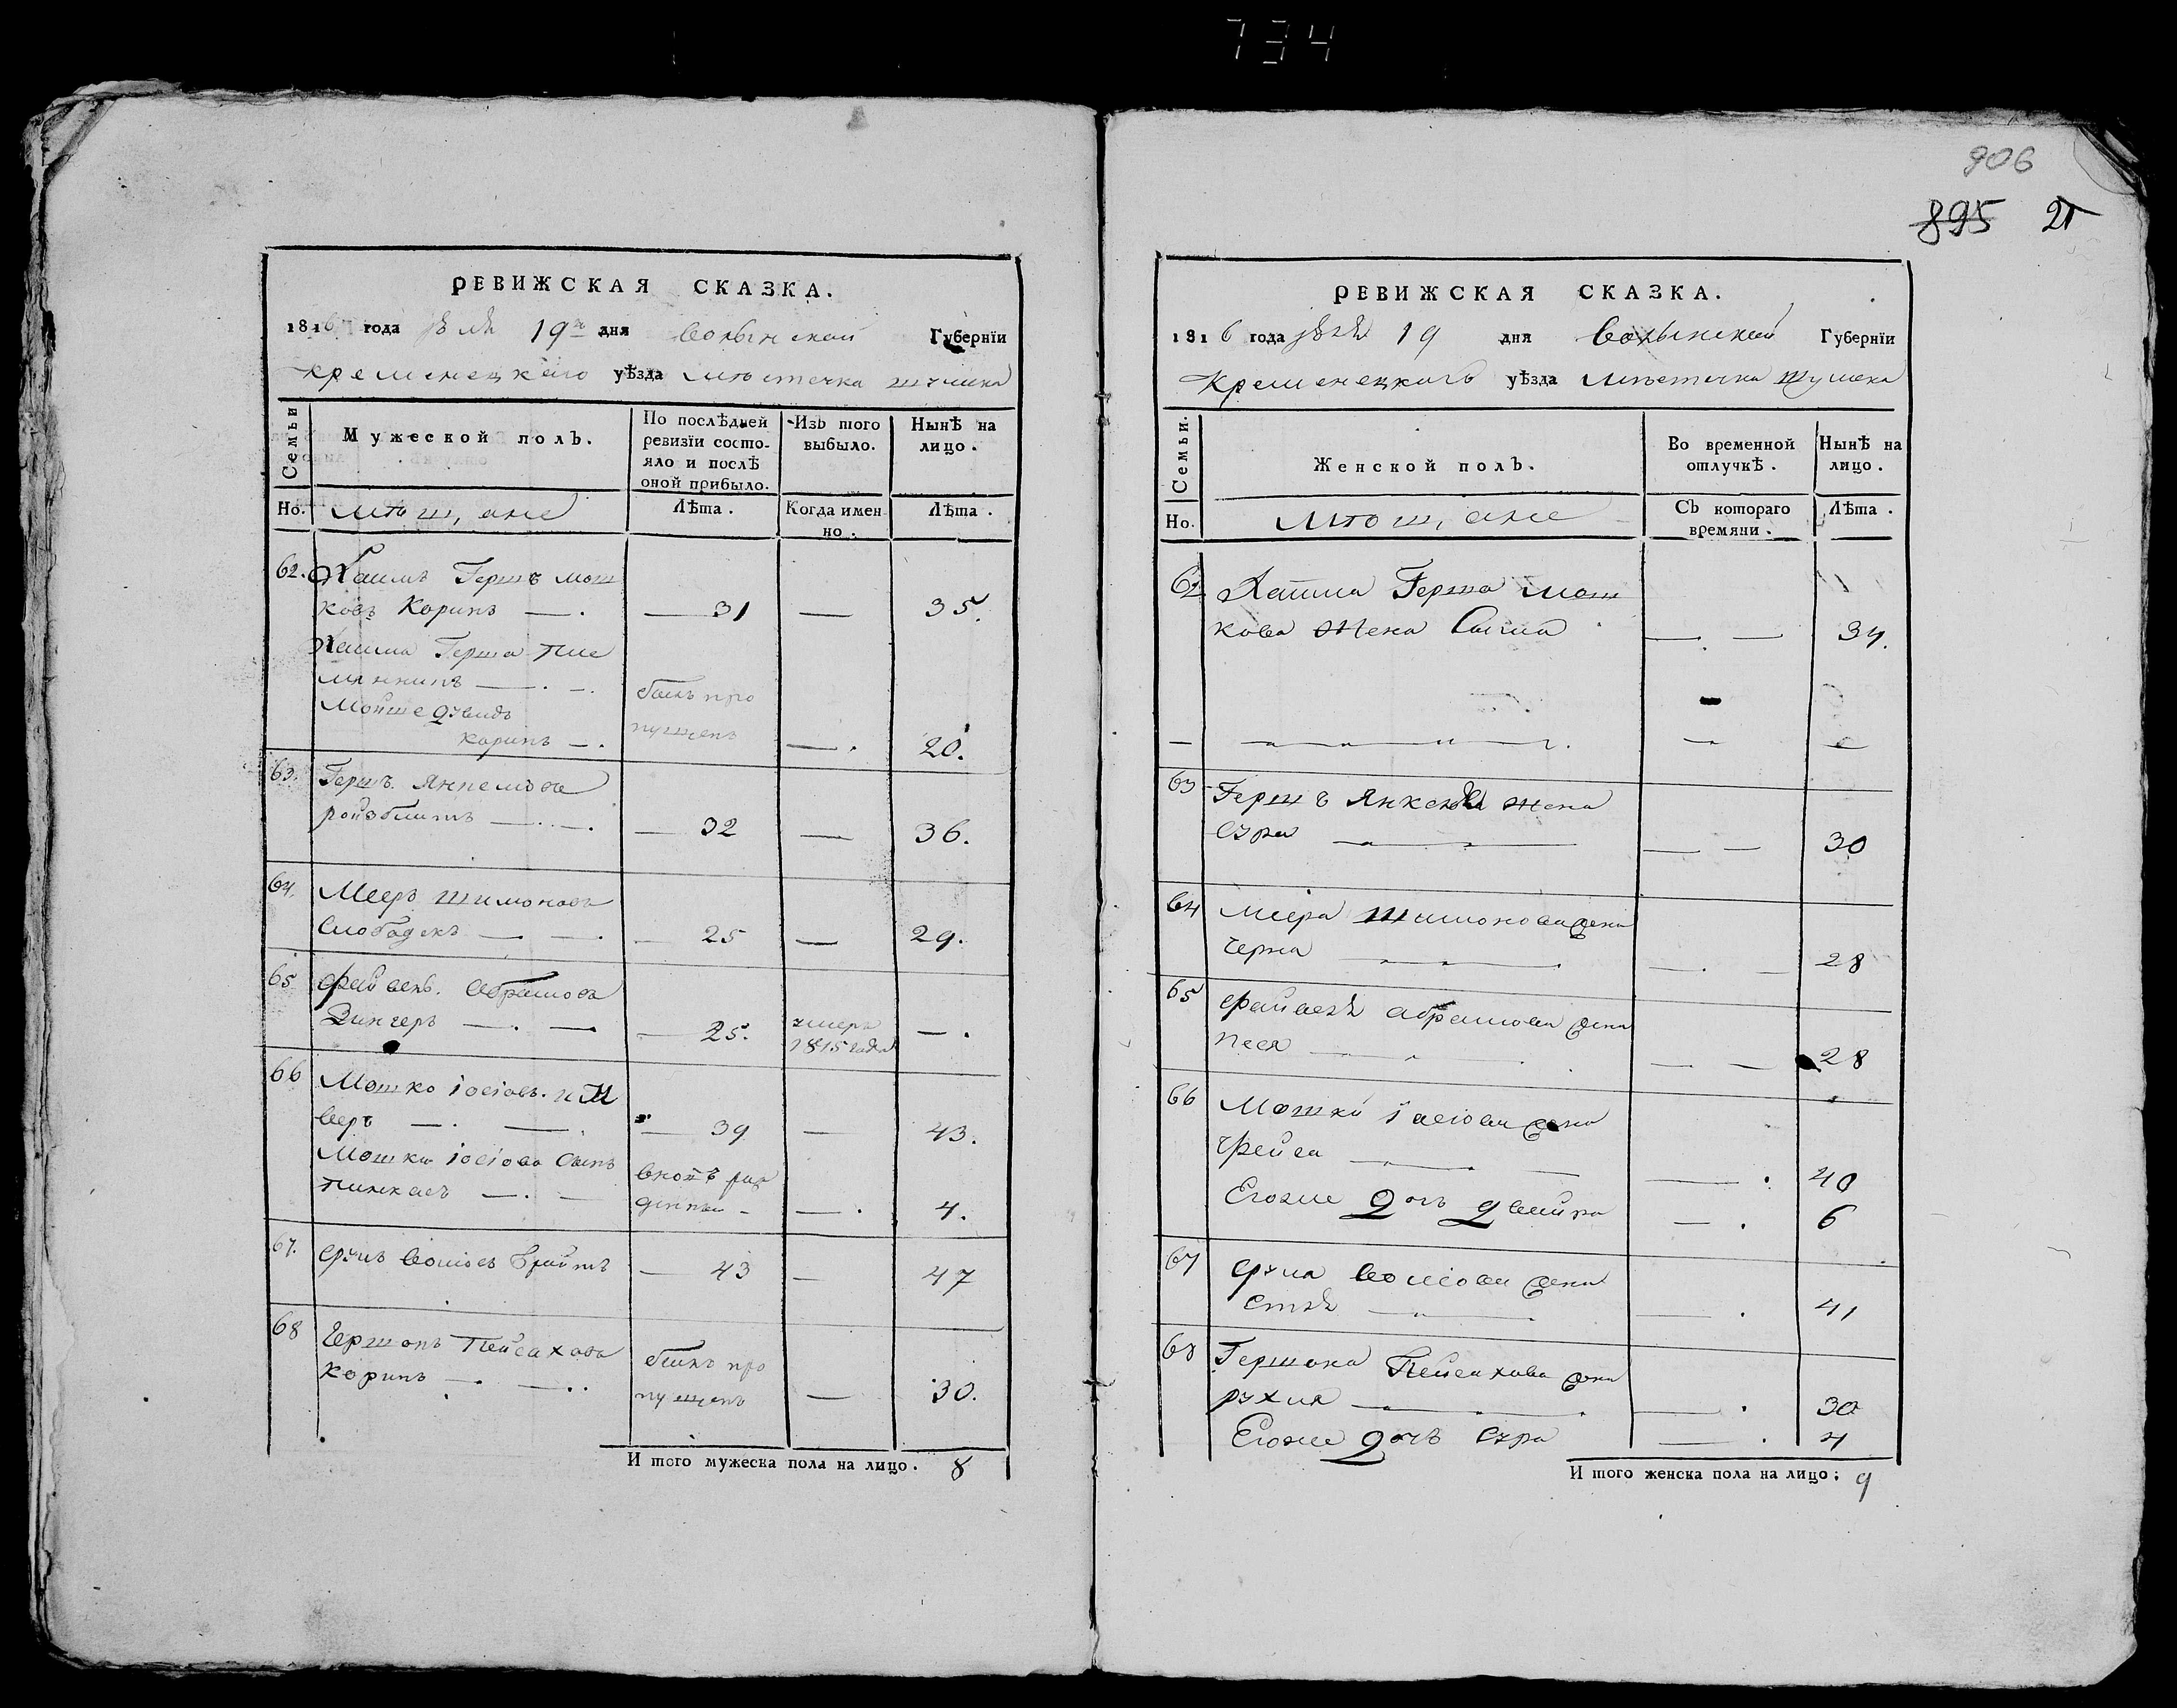 734
РЕВИЖСКАЯ СКАЗКА.
1816 года 19 дня Волынской Губернїи
Кременецкаго уѣзда мѣстечка
Семьи
Мужеской полъ.
По послѣдней ревизїи состояло и послѣ оной прибыло.
Изъ того выбыло.
Нынѣ на лицо.
Но.
мѣщане
Лѣта.
Когда именно.
Лѣта.
62. Хаимъ Гершъ Мош
ковъ Коринъ — 31 — 35.
Хаима Герша пле
мянникъ былъ про
Мойше
Коринъ пущенъ — 20.
63. Гершъ Янкелювъ
Ройзблитъ — 32 — 36.
64. Мееръ Шимоновъ
Слободекъ — 25 — 29.
65 Файвель Абрамовъ
— 25. умеръ 1815 года — .
66 Мошко Iосiовъ
— 39 — 43.
Мошка Iосiова сынъ
Пинкасъ вновѣ рож
денны — 4.
67. Срулъ — 43 — 47
68 Гершонъ Пейсаховъ былъ про
Коринъ пущенъ — 30.
И того мужеска пола на лицо. 8
906
895 21
РЕВИЖСКАЯ СКАЗКА.
1816 года 19 дня Волынской Губернїи
Кременецкаго уѣзда мѣстечка
Семьи.
Женской полъ.
Во временной отлучкѣ.
Нынѣ на лицо.
Но.
мѣщане
Съ котораго времяни.
Лѣта.
62 Хаима Герша Мош
кова жена — — 34.
63 Гершъ Янкелева жена
Сура — — 30
64 Меера Шимонова жена
Черна — — 28
65 Файвеля Абрамова жена
Песя — — 28
66 Мошки Iосiова жена
Фейга — . 40
Егоже дочь Двейра — . 6
67 Срула жена
— . 41
68 Гершона Пейсахова жена
Рухля — . 30
Егоже дочь Сура — . 4
И того женска пола на лицо: 9